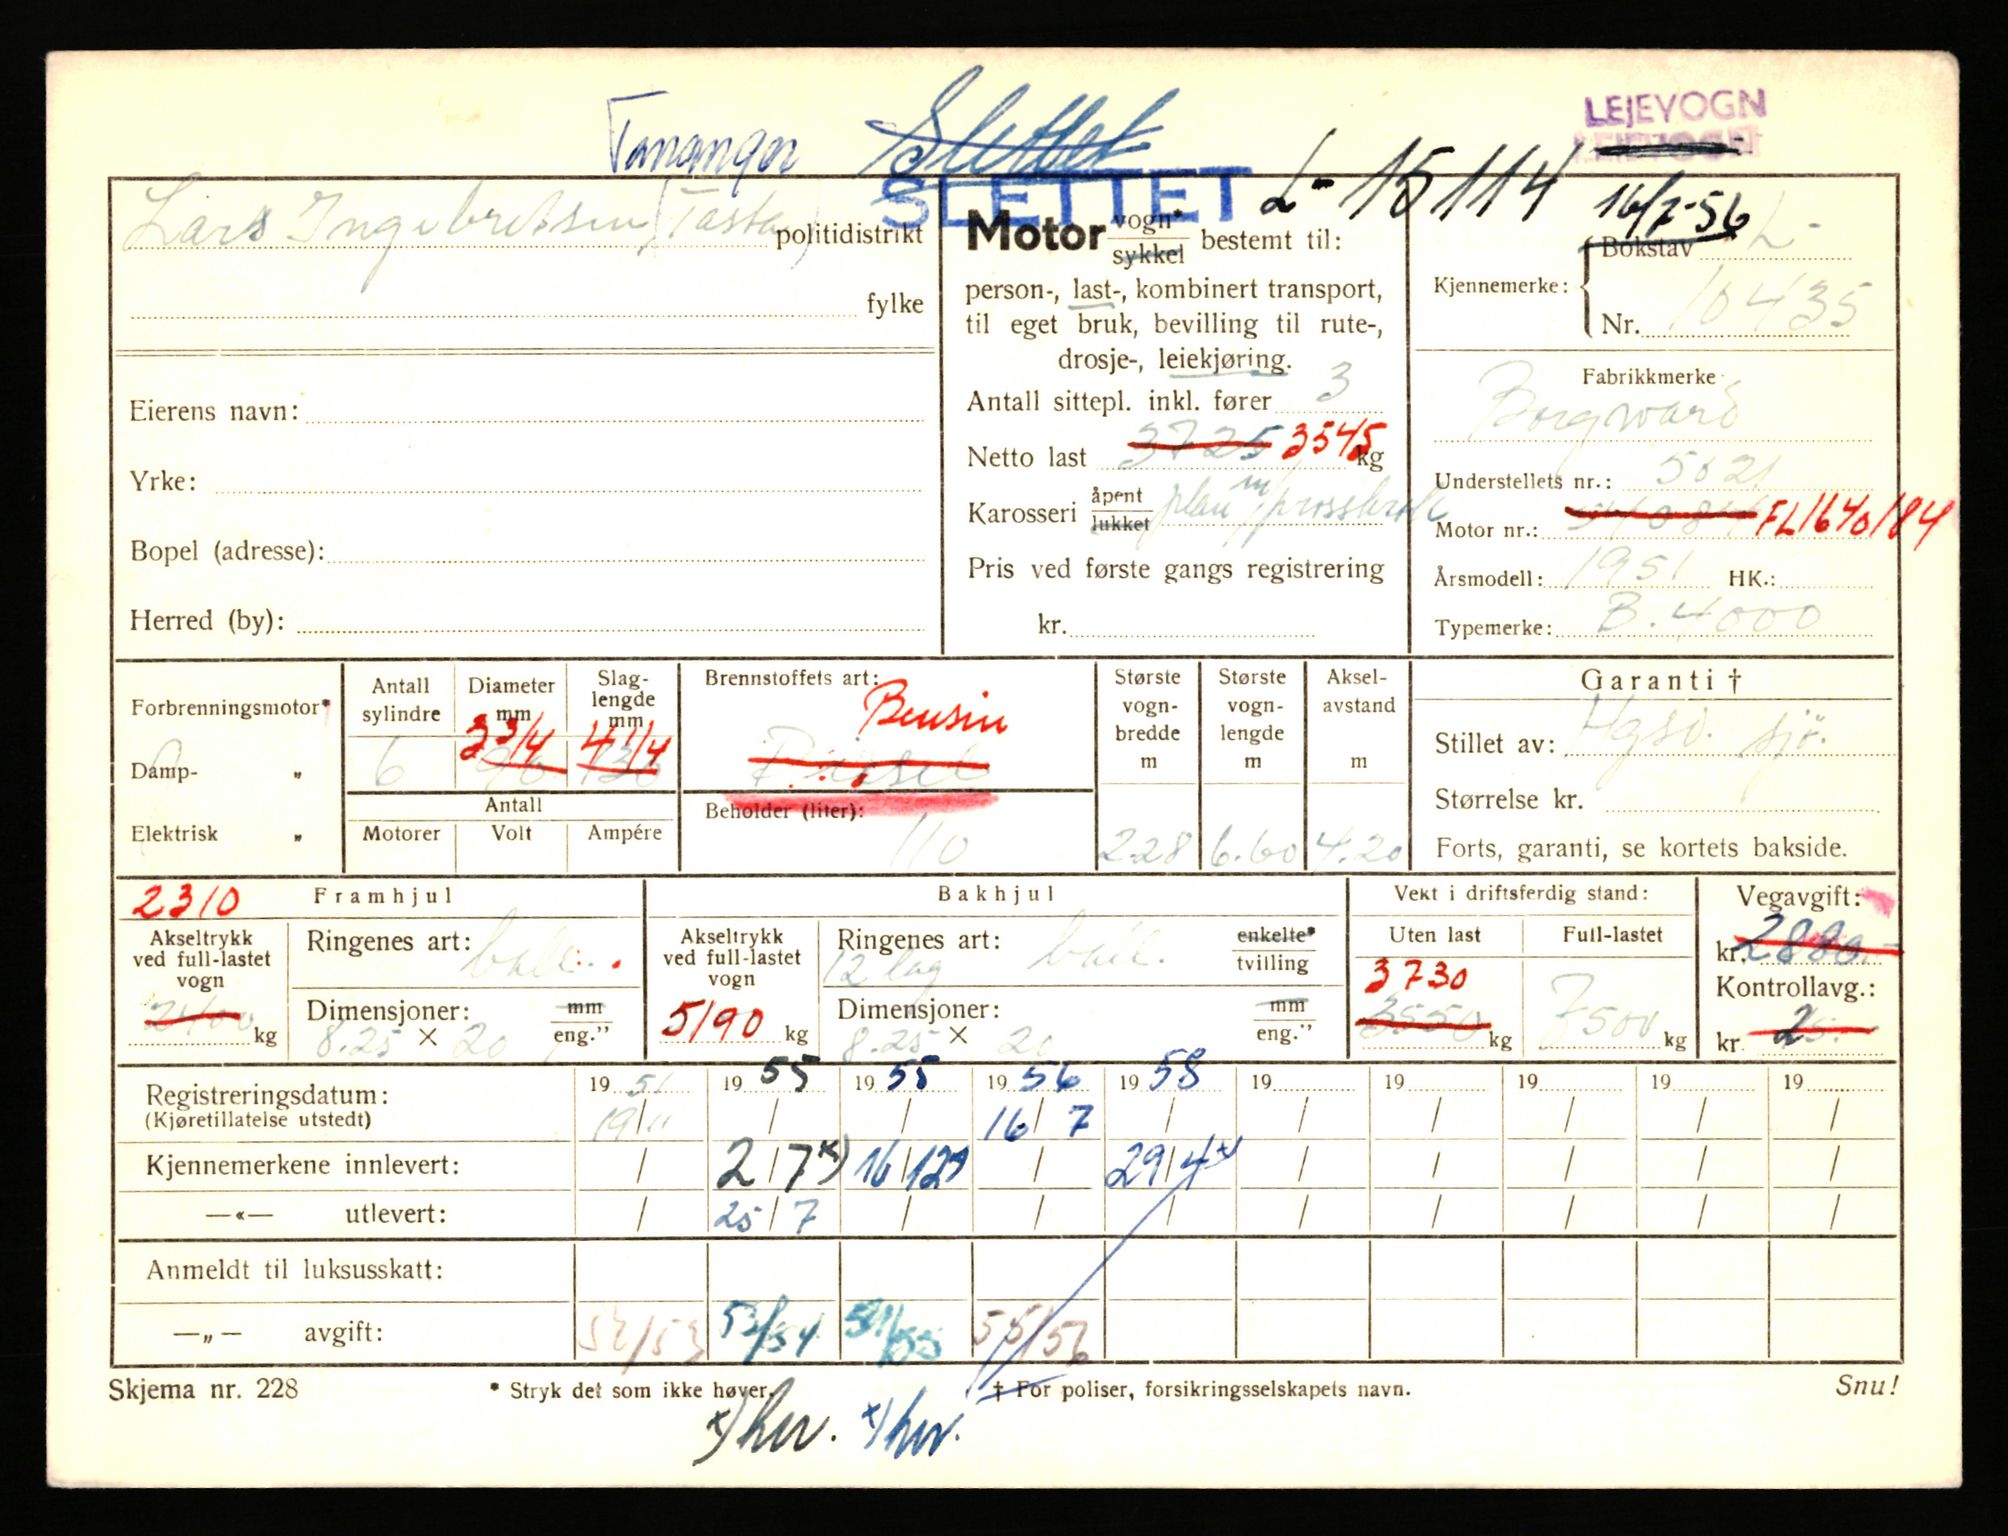 Tananger Slettet
LEJEVOGN
SLETTET L-15114 16/7-56
Lars Ingebretsen (Tasta) politidistrikt
fylke
Eierens navn:
Yrke:
Bopel (adresse):
Herred (by):
Motor vogn* sykkel bestemt til:
person-, last-, kombinert transport,
til eget bruk, bevilling til rute-,
drosje-, leiekjøring.
Antall sittepl. inkl. fører 3
Netto last 3725 3545 kg
Karosseri åpent lukket plan m/
Pris ved første gangs registrering
kr.
Kjennemerke: Bokstav L-
Nr. 10435
Fabrikkmerke
Borgward
Understellets nr.: 5021
Motor nr.: FL1640184
Årsmodell: 1951 HK.:
Typemerke: B.4000
Forbrenningsmotor*
Damp- „
Elektrisk „
Antall sylindre 6
Diameter mm 96 3 3/4
Slaglengde mm 130 4 1/4
Antall
Motorer Volt Ampére
Brennstoffets art: Bensin
Diesel
Beholder (liter):
110
Største vogn-bredde m 2.28
Største vogn-lengde m 6.60
Aksel-avstand m 4.20
Garanti †
Stillet av: Hgsd. sjø.
Størrelse kr.
Forts, garanti, se kortets bakside.
2310 Framhjul
Akseltrykk ved full-lastet vogn
2400 kg
Ringenes art: ball.
Dimensjoner: 8.25 × 20 mm eng.”
Bakhjul
Akseltrykk ved full-lastet vogn
5190 kg
Ringenes art: 12 lag ball. enkelte* tvilling
Dimensjoner: 8.25 × 20 mm eng.”
Vekt i driftsferdig stand:
Uten last Full-lastet
3730
3550 kg 7500 kg
Vegavgift:
kr. 2880.-
Kontrollavg.:
kr. 25.-
Registreringsdatum: 19 51 19 55 19 55 19 56 19 58 19 19 19 19 19
(Kjøretillatelse utstedt) 19/11 / / 16/7 / / / / / /
Kjennemerkene innlevert: / 2/7 x) 16/12 / 29/4 x) / / / / /
—«— utlevert: / 25/7 / / / / / / / /
Anmeldt til luksusskatt:
—„— avgift: 52/53 53/54 54/55 55/56
Skjema nr. 228 * Stryk det som ikke høver. † For poliser, forsikringsselskapets navn. Snu!
x) hv. x) hv.